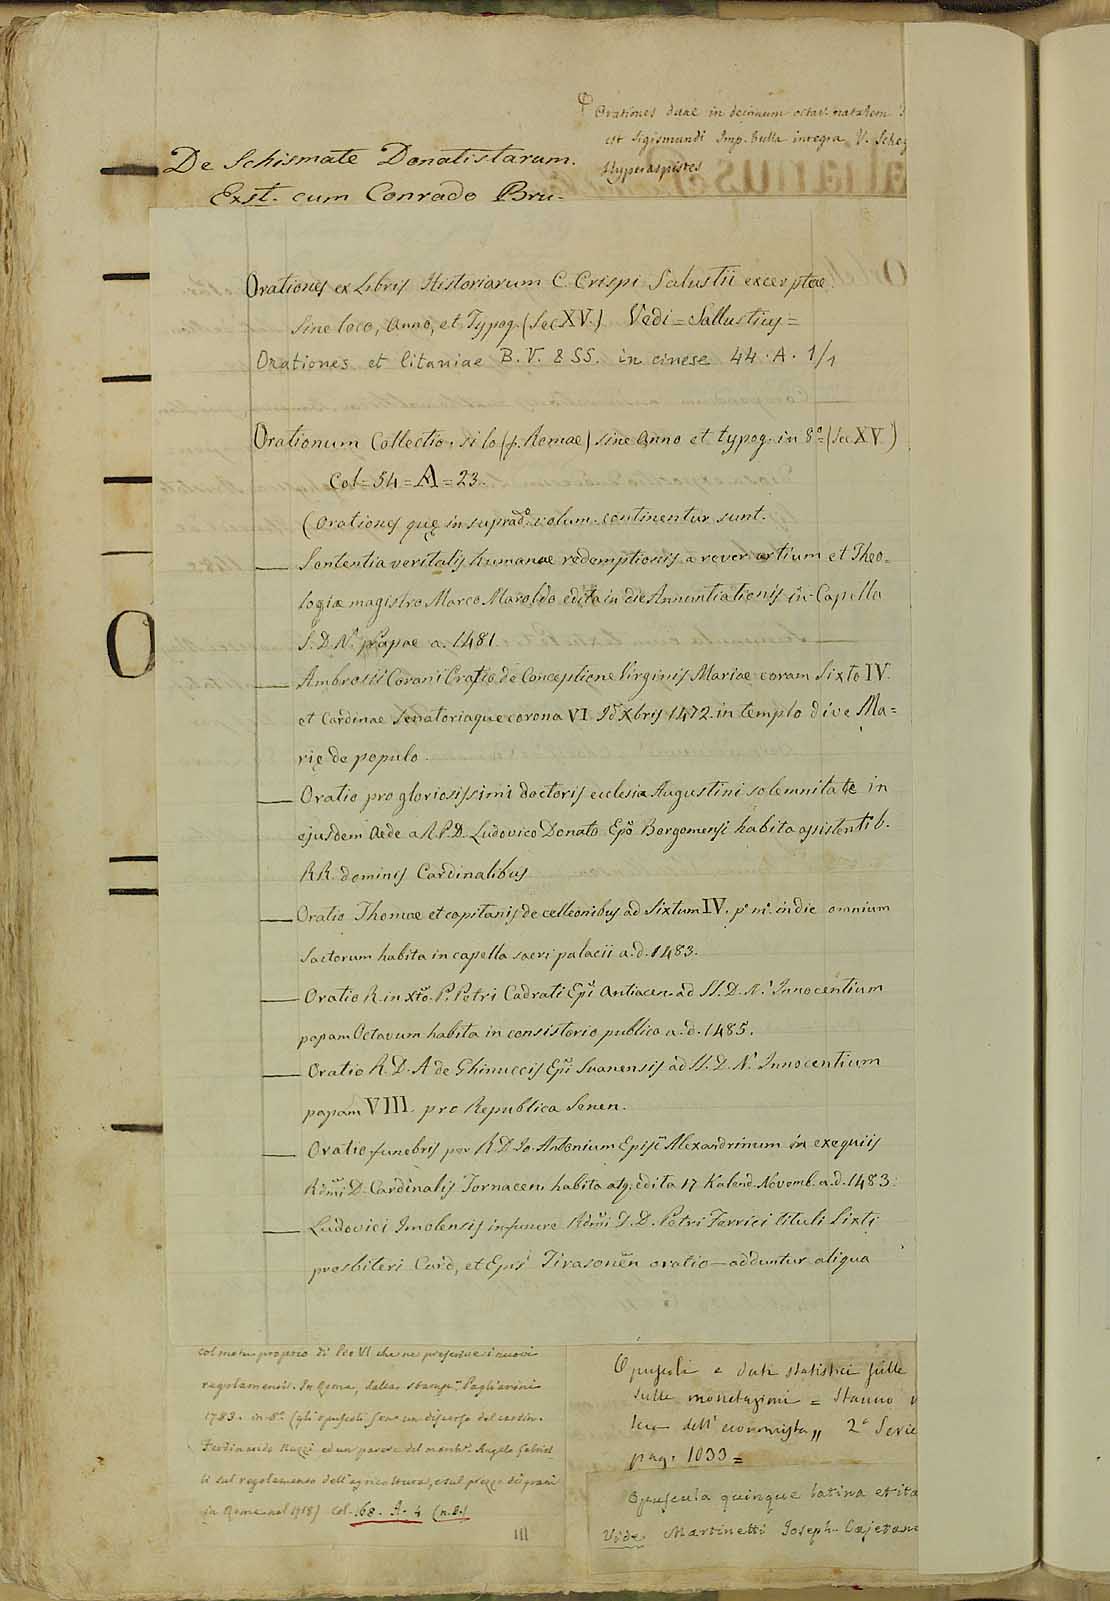 Orationes duae in decimum octav. natalem
est Sigismundi Imp. Bulla integra V.
Hyperaspistes
De Schismate Donatistarum.
Exst. cum Conrado Bru-
Orationes ex Libris Historiarum C. Crispi Salustii excerptae
sine loco, anno, et Typog. (Sec XV.) Vedi = Sallustius =
Orationes et litaniae B. V. & SS. in cinese 44. A. 1/1
Orationum Collectio. si lo (f. Romae) sine anno et typog. in 8.º (sec XV)
Col = 54 = A = 23.
(Orationes quę in suprad.º volum. continentur sunt.
— Sententia veritatis humanae redemptionis a rever artium et Theo-
logiæ magistro Marco Maroldo edita in die Annuntiationis in Capella
S. D. N. papae a. 1481.
— Ambrosii Corani Oratio de Conceptione Virginis Mariae coram Sixto IV.
et Cardinae senatoriaque corona VI Id Xbris 1472. in templo dive Ma=
rię de populo.
— Oratio pro gloriosissimi doctoris ecclesia Augustini solemnitate in
ejusdem Aede a R. P. D. Ludovico Donato Epo Bergomensi habita assistentib.
RR. dominis Cardinalibus
— Oratio Thomae et capitanis de celleonibus ad Sixtum IV. p. m. in die omnium
sactorum habita in capella sacri palacii a. d. 1483.
— Oratio R. in xto. P. Petri Cadrati Epi Antiacen. ad SS. D. N. Innocentium
papam Octavum habita in consistorio publico a. d. 1485.
— Oratio R. D. A de Ghinuccis Epi Suanensis ad SS. D. N. Innocentium
papam VIII. pro Republica Senen.
— Oratio funebris per R. D. Io. Antonium Episc Alexandrinum in exequiis
Rdmi D. Cardinalis Tornacen. habita atq. edita 17 Kalend. Novemb. a. d. 1483.
— Ludovici Imolensis in funere Rdmi D. D. Petri Ferrici tituli Sixti
presbiteri Card, et Epi Tirasonen oratio — adduntur aliqua
col motu-proprio di Pio VI che ne prescrive i nuovi
regolamenti. In Roma, dalla stamp.ª Pagliarini
1783. in 8.º (gli opuscoli sono un discorso del cardin.
Ferdinando Nuzzi ed un parere del Angelo Gabriel
li sul regolamento dell'agricoltura, e sul prezzo dei grani
in Roma nel 1718) col. 68. A. 4 (n. 8.)
III
Opuscoli e dati statistici sulle
sulle monetazioni = Stanno
dell'economista „ 2ª Serie
pag. 1033 =
Opuscula quinque latina et ita
Vide Martinetti Joseph. Cajetan